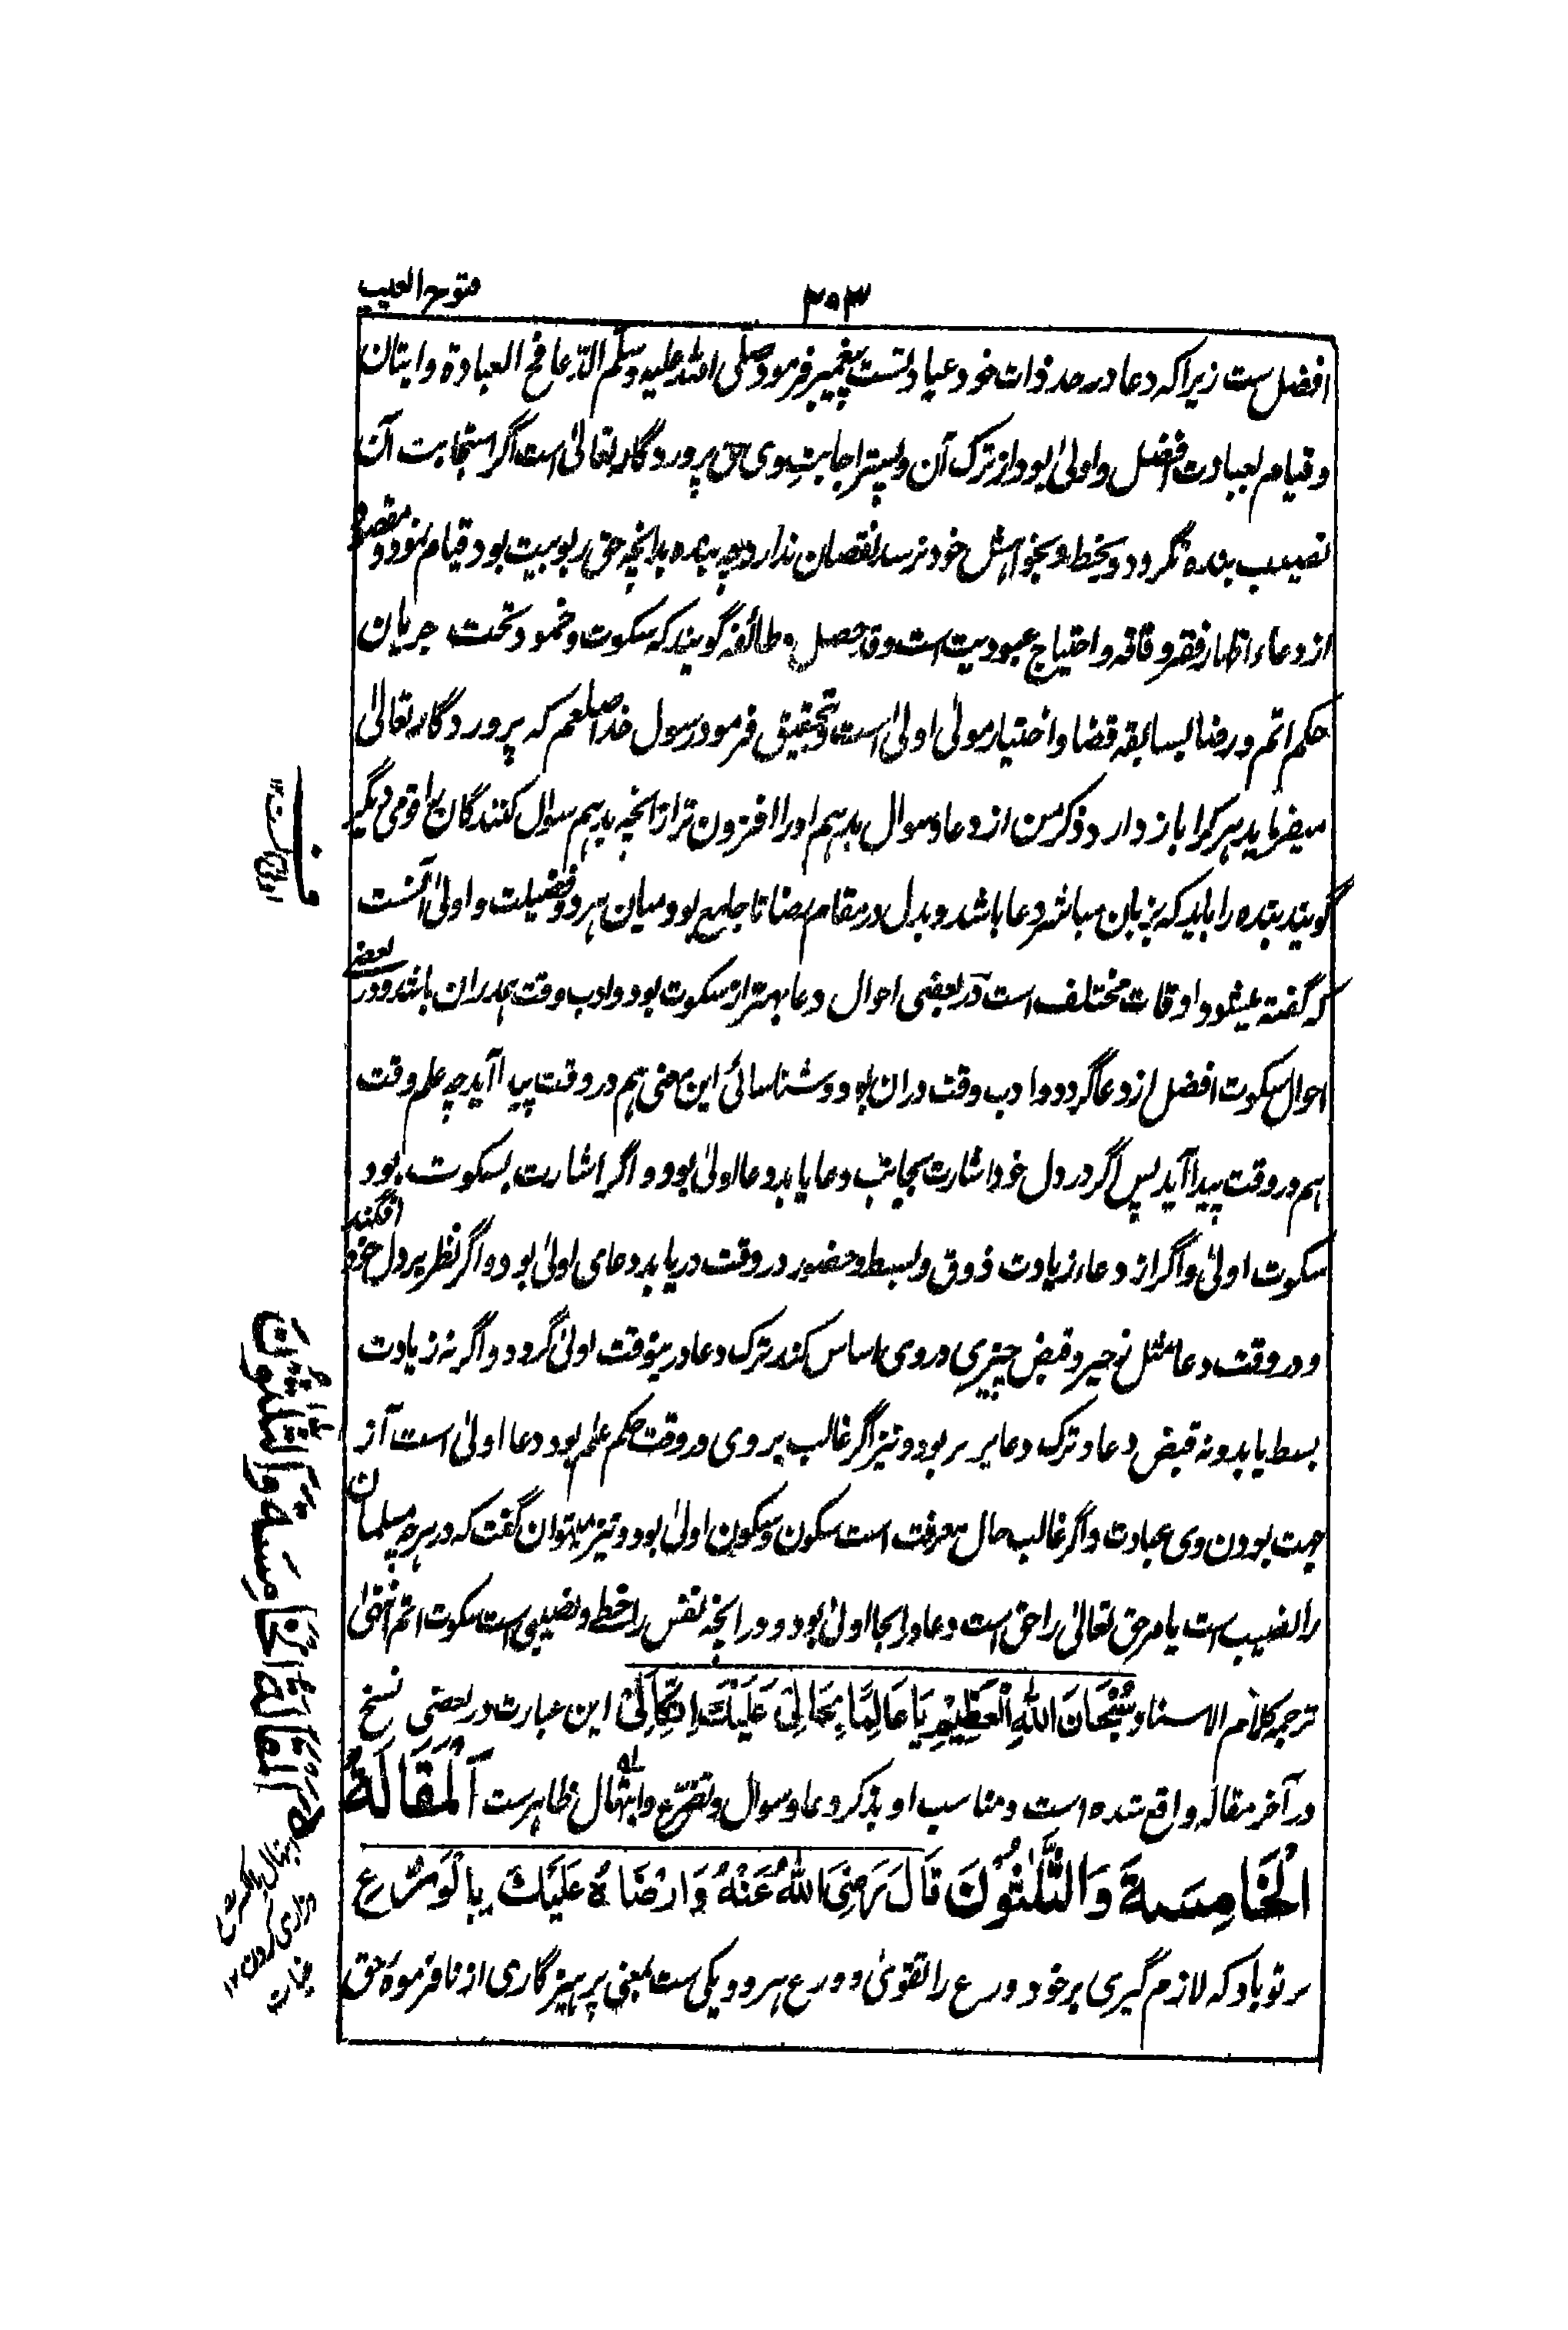 فتوح الغیب
۳۰۳
افضل ست زیرا که دعا در حد ذات خود عبادتست پیغمبر فرمود صلی الله علیه وسلم الدعا مخ العبادة واتیان
وقیام بعبادت افضل واولیٰ بود از ترک آن وپستر اجابتِ وی حق پروردگار تعالیٰ است اگر استجابت آن
نصیب بنده نگردد وبحظ وبخواهش خود نرسد نقصان ندارد چه بنده بدانچه حق ربوبیت بود قیام نمود ومقصود
از دعاء اظهار فقر وفاقه واحتیاج عبودیت است وقد حصل وطائفه گویند که سکوت وخمود تحت جریان
حکم اتم ورضا بسابقه قضا واختیار مولیٰ اولیٰ است وتحقیق فرمود رسول خدا صلعم که پروردگار تعالیٰ
میفرماید هر کرا باز دارد ذکر من از دعا وسوال بدهم او را افزون تر از انچه بدهم سوال کنندگان را وقومی دیگر
گویند بنده را باید که بزبان مباشر دعا باشد وبدل در مقام رضا تا جامع بود میان هر دو فضیلت واولیٰ آنست
که گفته میشود اوقات مختلف است در بعضی احوال دعا بهتر از سکوت بود وادب وقت هم دران باشد ودر بعضے
احوال سکوت افضل از دعا گردد وادب وقت دران بود وشناسائی این معنی هم در وقت پیدا آید چه علم وقت
هم در وقت پیدا آید پس اگر در دل خود اشارت بجانب دعا یابد دعا اولیٰ بود واگر اشارت بسکوت بود
سکوت اولیٰ واگر از دعاء زیادت ذوق وبسط وحضور در وقت دریابد دعای اولیٰ بود واگر نظر بر دل خود افگند
ودر وقت دعا مثل زجیر وقبض چیزی در وی احساس کند ترک دعا درینوقت اولیٰ گردد واگر نه زیادت
بسط یابد ونه قبض دعا وترک دعا برابر بود ونیز اگر غالب بر وی در وقت حکم علم بود دعا اولیٰ است از
جهت بودن وی عبادت واگر غالب حال معرفت است سکون وسکوت اولیٰ بود ونیز میتوان گفت که در هر چه مسلمانان
را نصیب است یا مر حق تعالیٰ را حق است دعا درانجا اولیٰ بود ودر انچه نفس را حظ ونصیبی است سکوت اتم انتهیٰ
ترجمه کلام الاستاد سُبْحَانَ اللهِ الْعَظِيْمِ يَا عَالِمًا بِحَالِیْ عَلَيْكَ اِتِّكَالِیْ این عبارت در بعضی نسخ
در آخر مقاله واقع شده است ومناسب او بذکر دعا وسوال وتضرّع وابتهال ظاهرست اَلْمَقَالَةُ
الْخَامِسَةُ وَالثَّلٰثُوْنَ قَالَ رَضِیَ اللهُ عَنْهُ وَاَرْضَاهُ عَلَيْكَ بِالْوَرْعِ
بر توباد که لازم گیری بر خود ورع را تقویٰ وورع هر دو یکی ست بمعنی پرهیزگاری از نافرموده حق
المقالة الخامسة والثلثون
زاری کردن ۱۲
غیاث